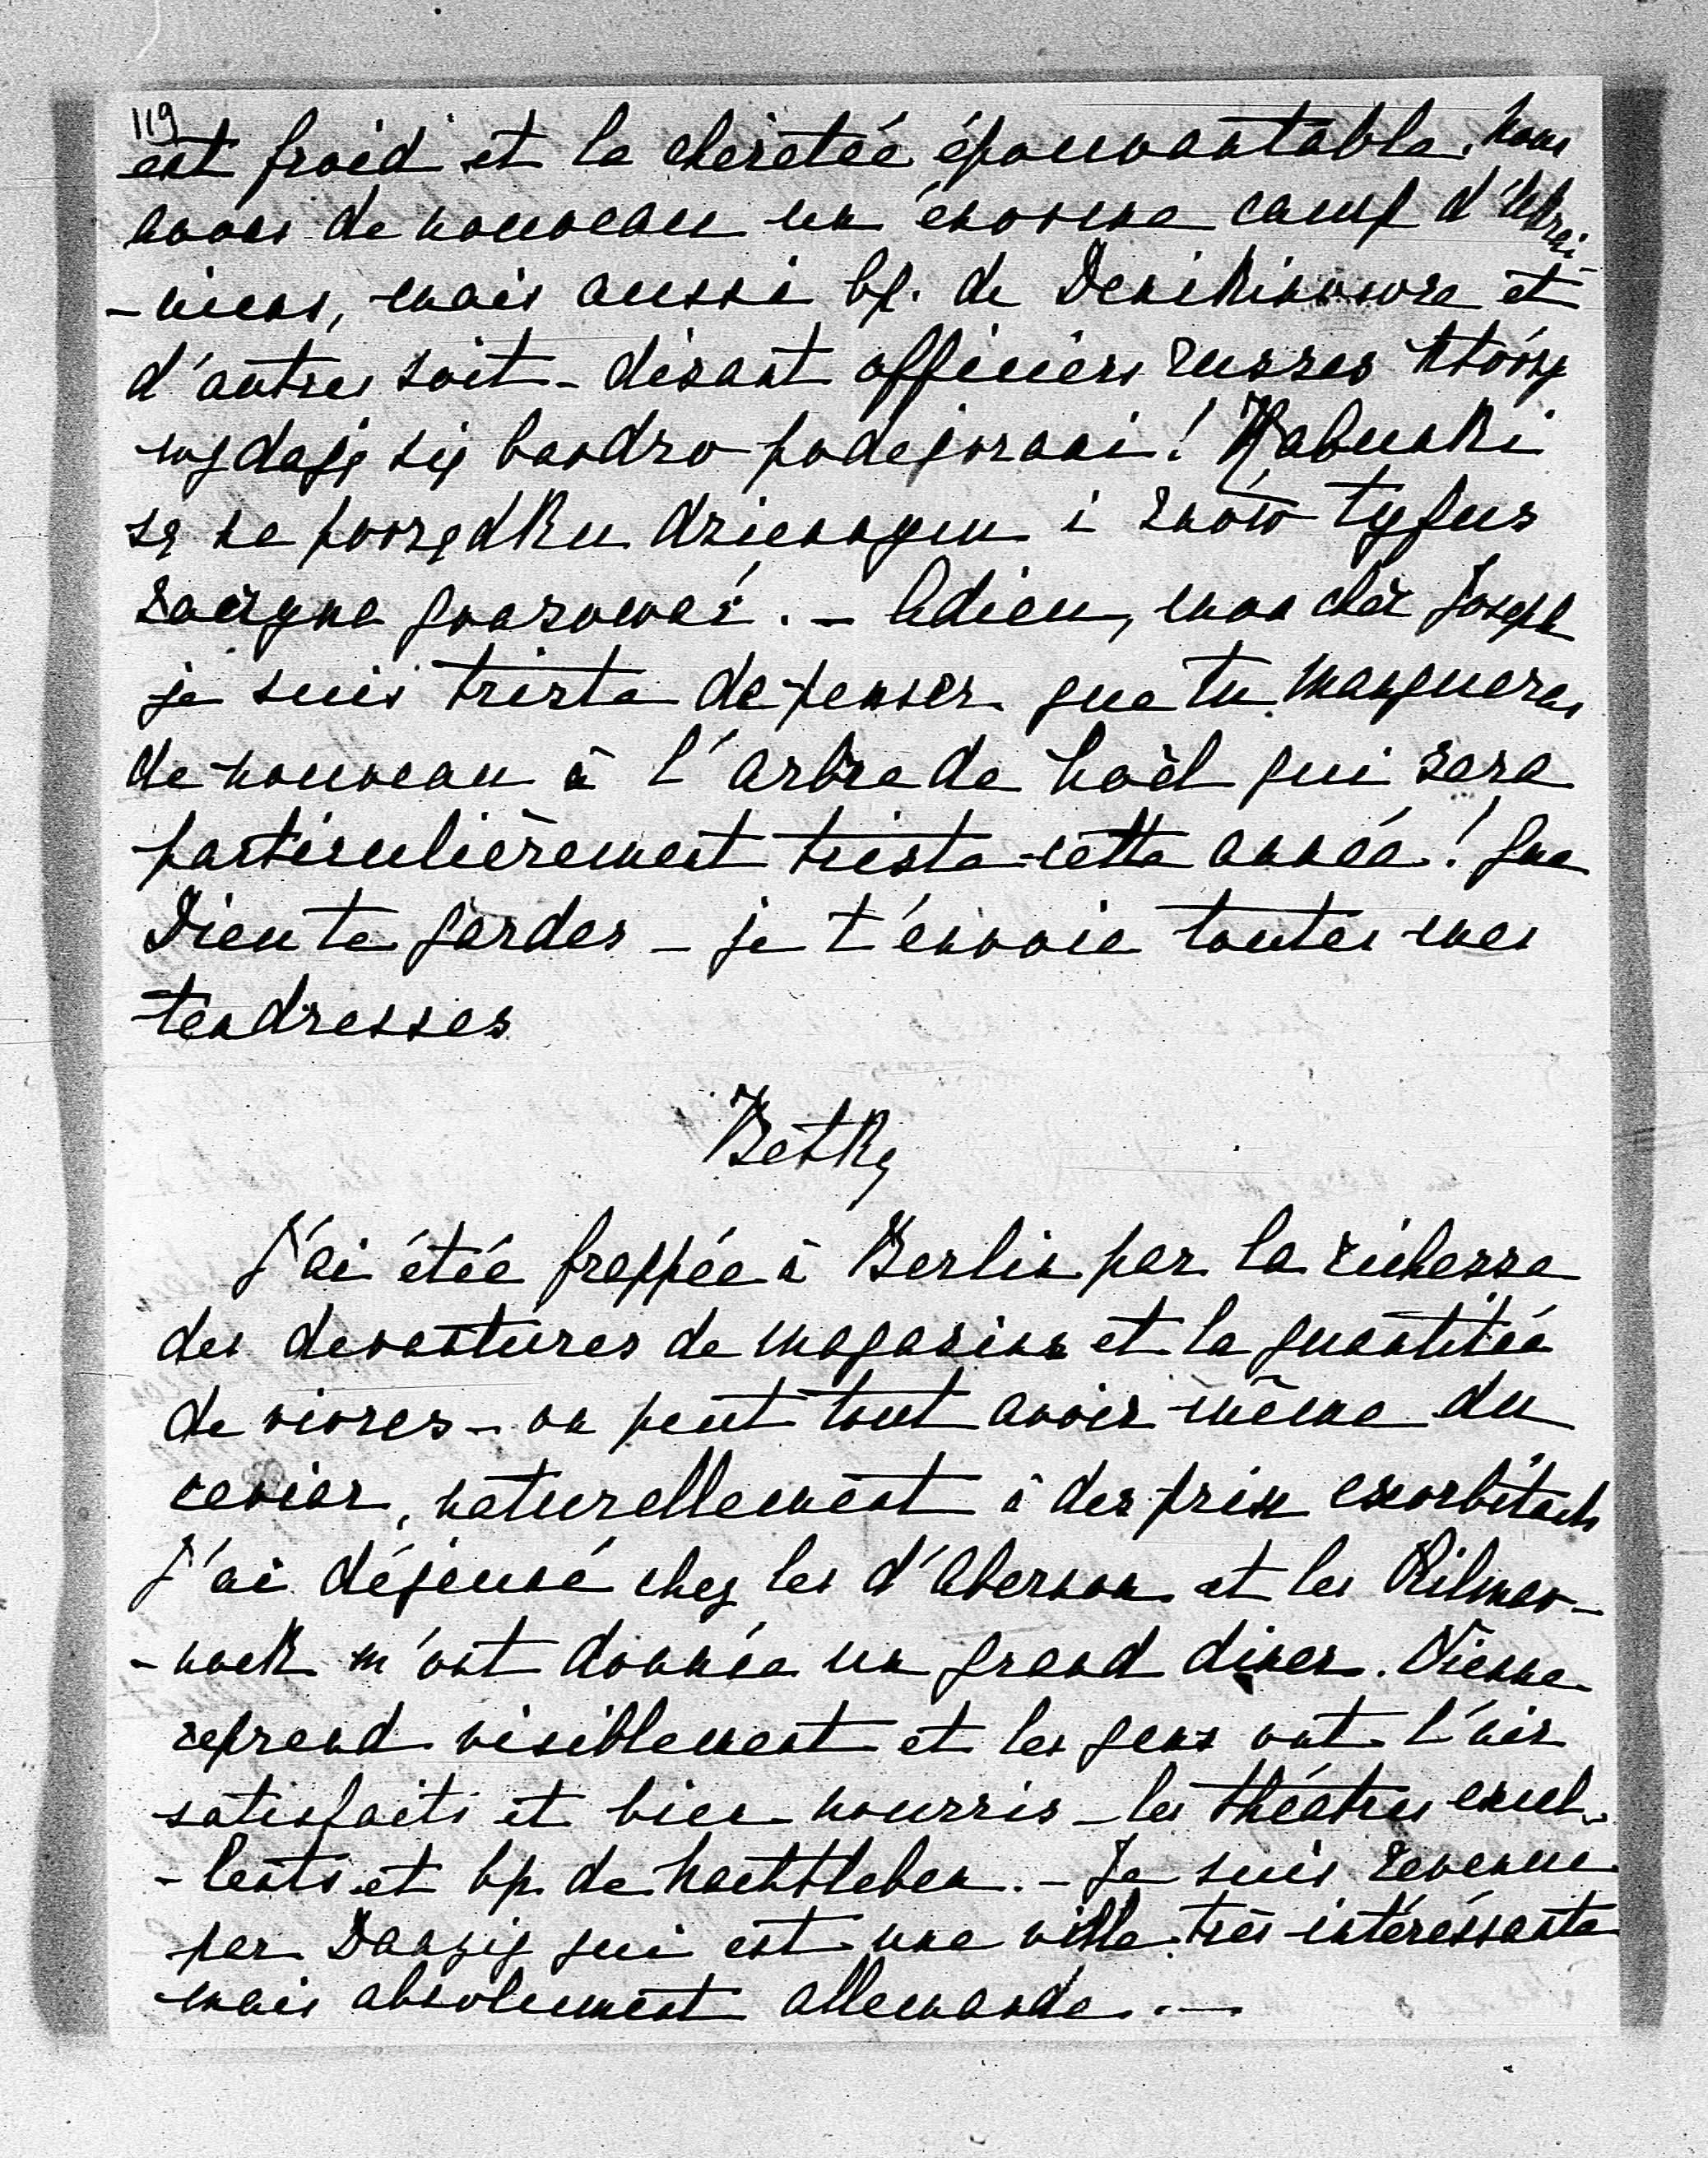 119
est froid et la cheretée épouvantable. Nous
avons de nouveau un énorme camp d'Ukrai-
-niens, mais aussi bp. de Denikinowce et
d'autres soit-disant officiers russes którzy
wydają się bardzo podejrzani! Rabunki
są na porządku dziennym i znów tyfus
zaczyna grasować. - Adieu, mon cher Joseph
je suis triste de penser que tu manqueras
de nouveau à l'arbre de Noël qui sera
particulièrement triste cette année! Que
Dieu te gardes - je t'envoie toutes mes
tendresses
Betka
J'ai étée frappée à Berlin par la richesse
des devantures de magasins et la quantitée
de vivres - on peut tout avoir même du
caviar, naturellement à des prix exorbitants
J'ai déjeuné chez les d'Abernon et les Kilmar-
-nock m'ont donnée un grand diner. Vienne
reprend visiblement et les gens ont l'air
satisfaits et bien nourris - les théatres exul-
-lents et bp. de Nachtleben. - Je suis revenue
par Danzig qui est une ville très intéréssante
mais absolument allemande. -